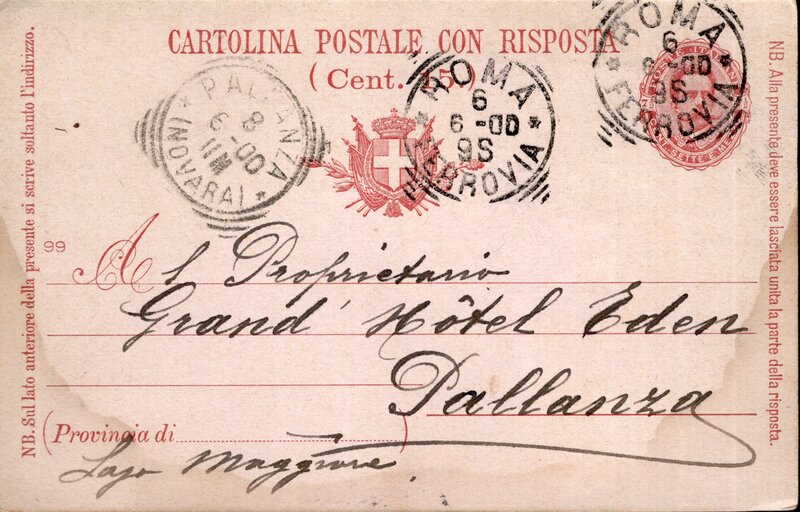 CARTOLINA POSTALE CON RISPOSTA
(Cent. 15.)
ROMA
6
6-00
9S
FERROVIA
ROMA
6
6-00
9S
FERROVIA
PALLANZA
8
6-00
11M
(NOVARA)
NB. Sul lato anteriore della presente si scrive soltanto l'indirizzo.
NB. Alla presente deve essere lasciata unita la parte della risposta.
99
Al Proprietario
Grand' Hôtel Eden
Pallanza
(Provincia di
Lago Maggiore